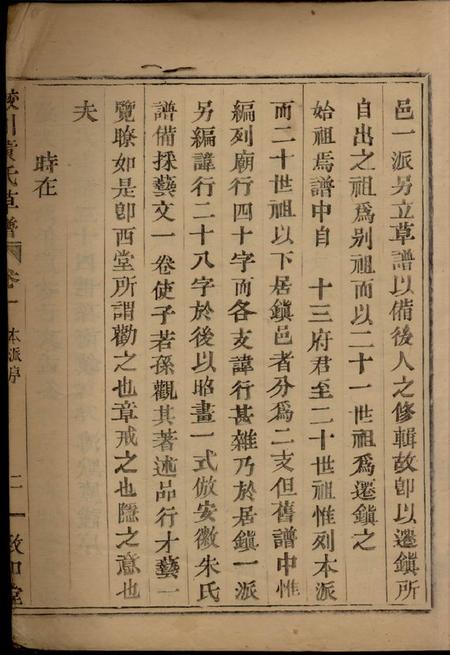 邑一派另立草譜以備後人之修輯故卽以遷鎭所
自出之祖爲別祖而以二十一世祖爲遷鎭之
始祖焉譜中自　十三府君至二十世祖惟列本派
而二十世祖以下居鎭邑者分爲二支但舊譜中惟
編列廟行四十字而各支諱行甚雜乃於居鎭一派
另編諱行二十八字於後以昭畫一式倣安徽朱氏
譜備採藝文一卷使子若孫觀其著述品行才藝一
覽瞭如是卽西堂所謂勸之也章戒之也隱之意也
夫
時在
川黃氏草譜 卷一 本派序 二 敦和堂